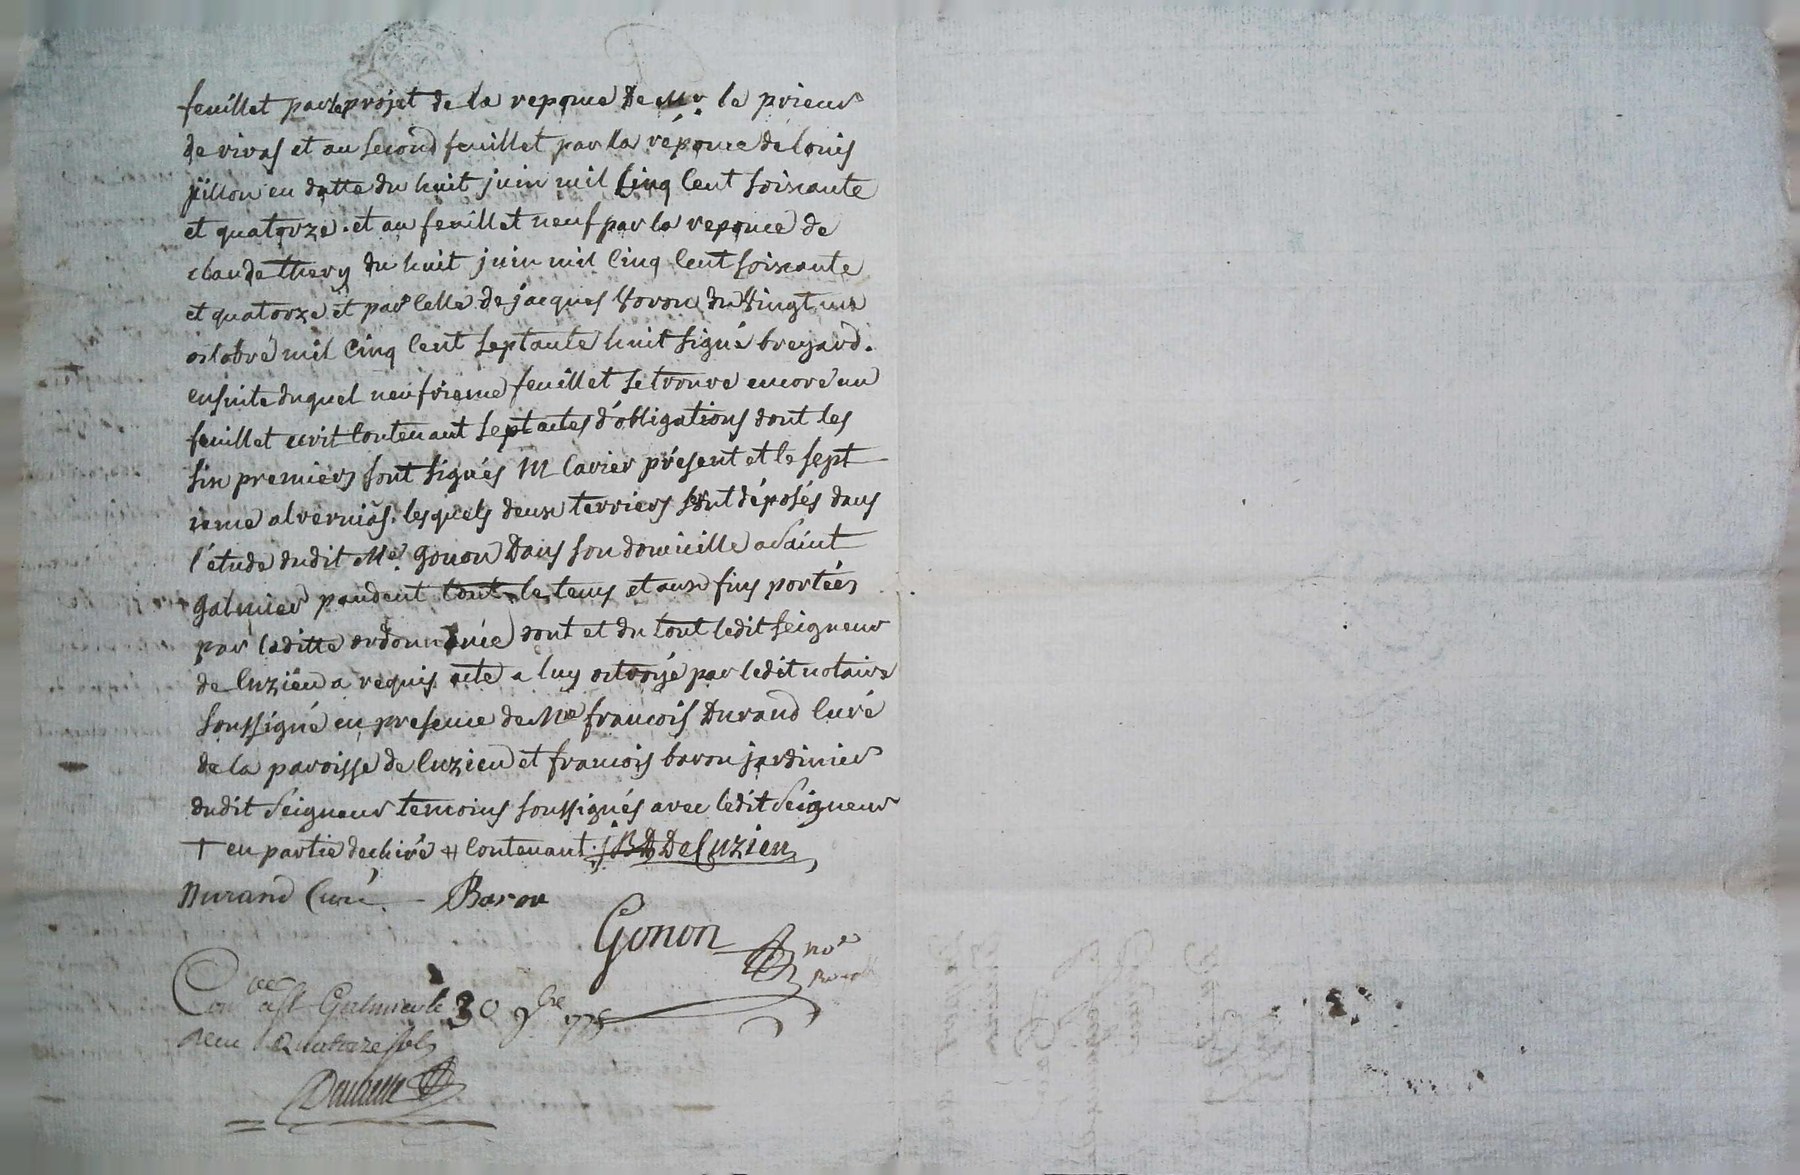 feuillet par le projet de la reponce De Mr. le prieur
de rivas et au second feuillet par la réponce de louis
jüllon en datte du huit juin mil Cinq Cent soixante
et quatorze. et au feuillet neuf par la reponce de
claude thery du huit juin mil Cinq Cent soixante
et quatorze et par Celle de jacques Voron du Vingt un
octobre mil Cinq Cent septante huit signé breyard.
ensuite duquel neufvieme feuillet se trouve encore un
feuillet ecrit Contenant sept actes d'obligations dont les
six premiers sont signés M Cavier présent et le sept
ieme alvernias. lesquels deux terriers sont déposés dans
l'étude dudit Me. Gonon Dans son domicille a Saint
galmier pendent tout le tems et aux fins portées
par laditte ordonnance dont et du tout ledit seigneur
de Cuzieu a requis acte a luy octroyé par ledit notaire
soussigné en presence de Mre françois Durand Curé
de la paroisse de Cuzieu et francois baron jardinier
dudit Seigneur temoins soussignés avec ledit Seigneur
† en partie dechiré # Contenant. jBD De Cuzieu
Durand Curé. Baron
Gonon
no.e
Con.lee a St Galmier le 30 9bre
Receu Quatorze sols